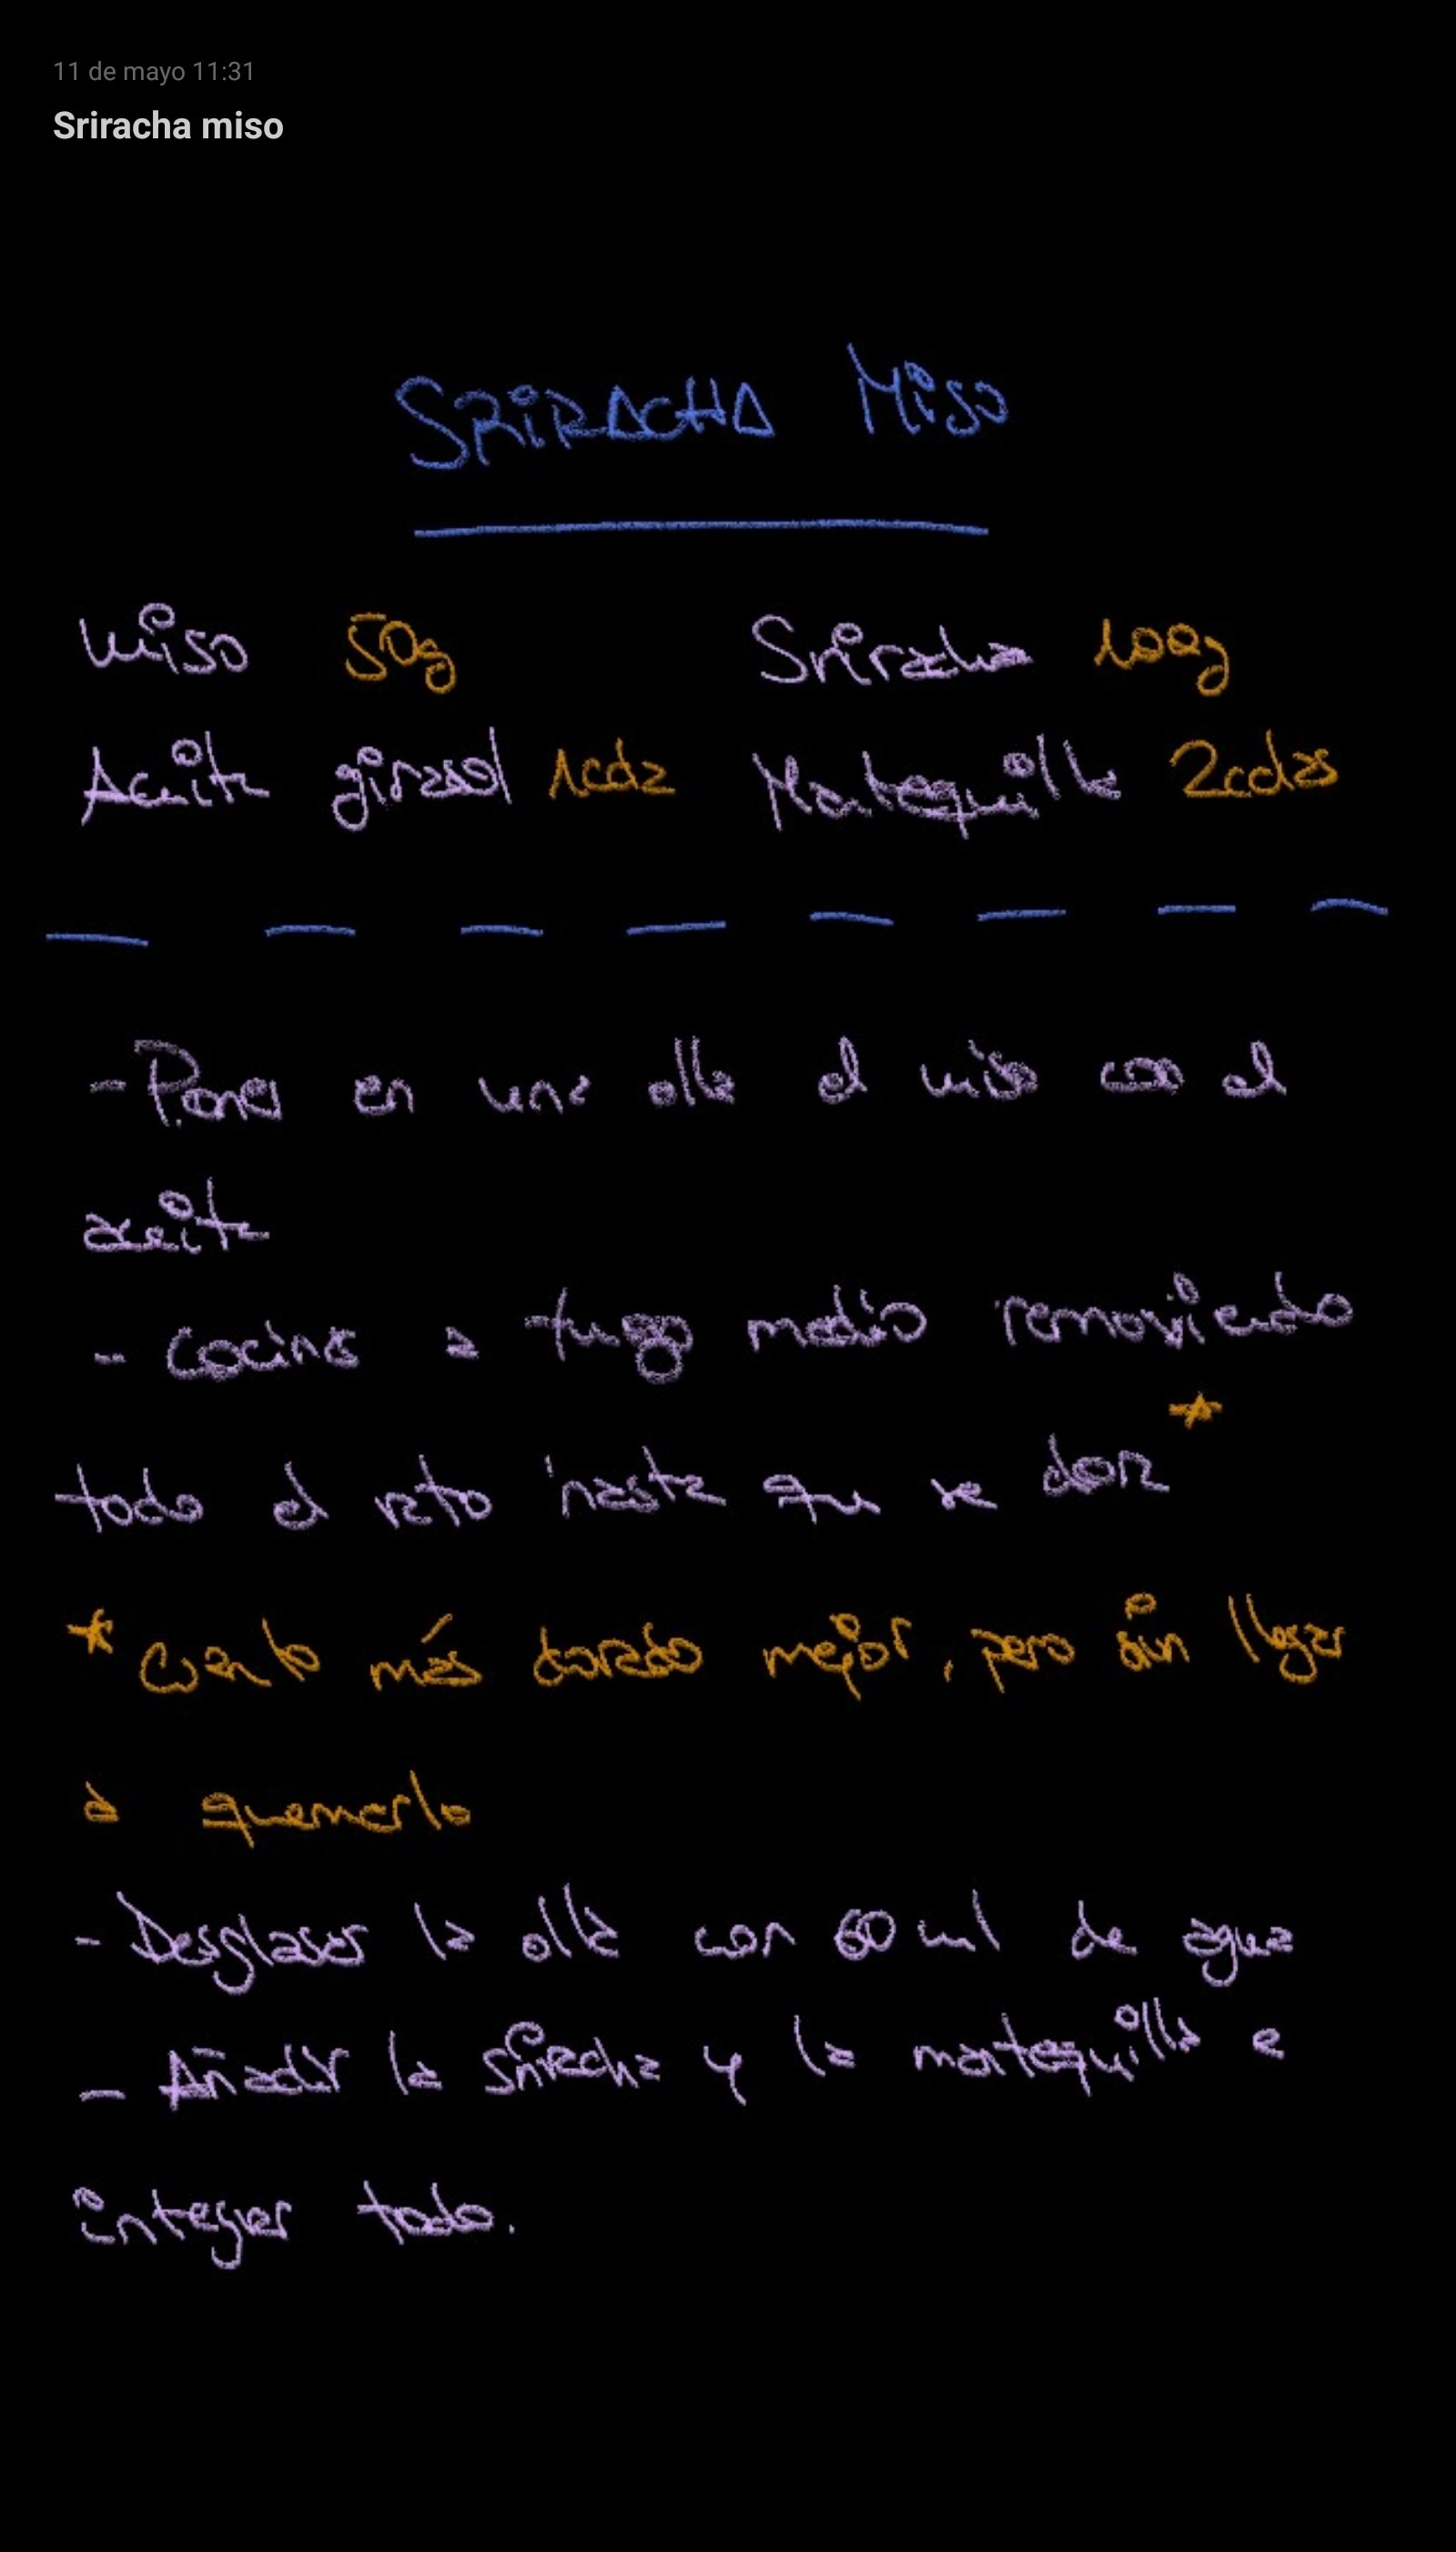 11 de mayo 11:31
Sriracha miso
SRIRACHA MISO
Miso 50g Sriracha 100g
Aceite girasol 1cda Mantequilla 2cdas
- Poner en una olla el miso con el
aceite
- Cocinar a fuego medio removiendo
todo el reto hasta que se dore *
* Cuanto más dorado mejor, pero sin llegar
a quemarlo
- Desglasar la olla con 60 ml de agua
- Añadir la sriracha y la mantequilla e
integrar todo.